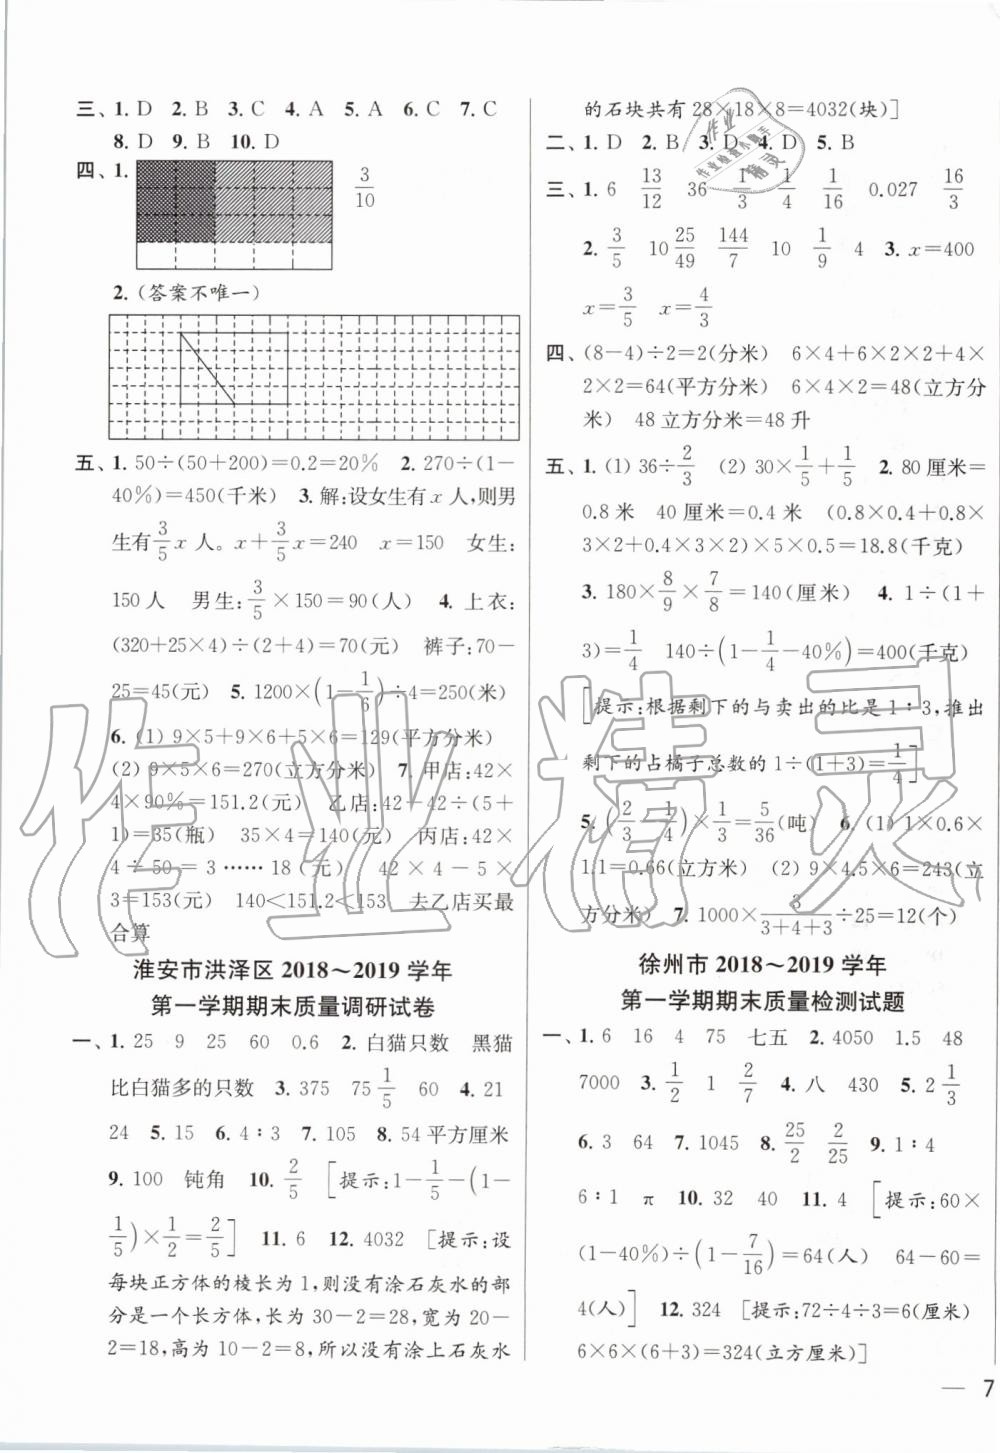 三、1. D 2. B 3. C 4. A 5. A 6. C 7. C
8. D 9. B 10. D
四、1. 3/10
2. (答案不唯一)
五、1. 50÷(50+200)=0.2=20% 2. 270÷(1-
40%)=450(千米) 3. 解:设女生有 x 人,则男
生有3/5x 人。x+3/5x=240 x=150 女生:
150 人 男生:3/5×150=90(人) 4. 上衣:
(320+25×4)÷(2+4)=70(元) 裤子:70-
25=45(元) 5. 1200×(1-1/6)÷4=250(米)
6. (1) 9×5+9×6+5×6=129(平方分米)
(2) 9×5×6=270(立方分米) 7. 甲店:42×
4×90%=151.2(元) 乙店:42÷42÷(5+
1)=35(瓶) 35×4=140(元) 丙店:42×
4÷50=3……18(元) 42×4-5×
3=153(元) 140<151.2<153 去乙店买最
合算
淮安市洪泽区 2018~2019 学年
第一学期期末质量调研试卷
一、1. 25 9 25 60 0.6 2. 白猫只数 黑猫
比白猫多的只数 3. 375 75 1/5 60 4. 21
24 5. 15 6. 4∶3 7. 105 8. 54 平方厘米
9. 100 钝角 10. 2/5 [提示:1-1/5-(1-
1/5)×1/2=2/5] 11. 6 12. 4032 [提示:设
每块正方体的棱长为 1,则没有涂石灰水的部
分是一个长方体,长为 30-2=28,宽为 20-
2=18,高为 10-2=8,所以没有涂上石灰水
的石块共有 28×18×8=4032(块)]
二、1. D 2. B 3. D 4. D 5. B
三、1. 6 13/12 36 1/3 1/4 1/16 0.027 16/3
2. 3/5 10 25/49 144/7 10 1/9 4 3. x=400
x=3/5 x=4/3
四、(8-4)÷2=2(分米) 6×4+6×2×2+4×
2×2=64(平方分米) 6×4×2=48(立方分
米) 48 立方分米=48 升
五、1. (1) 36÷2/3 (2) 30×1/5+1/5 2. 80 厘米=
0.8 米 40 厘米=0.4 米 (0.8×0.4+0.8×
3×2+0.4×3×2)×5×0.5=18.8(千克)
3. 180×8/9×7/8=140(厘米) 4. 1÷(1+
3)=1/4 140÷(1-1/4-40%)=400(千克)
[提示:根据剩下的与卖出的比是 1∶3,推出
剩下的占橘子总数的 1÷(1+3)=1/4]
5. (2/3-1/4)×1/3=5/36(吨) 6. (1) 1×0.6×
1.1=0.66(立方米) (2) 9×4.5×6=243(立
方分米) 7. 1000×3/(3+4+3)÷25=12(个)
徐州市 2018~2019 学年
第一学期期末质量检测试题
一、1. 6 16 4 75 七五 2. 4050 1.5 48
7000 3. 1/2 1 2/7 4. 八 430 5. 2 1/3
6. 3 64 7. 1045 8. 25/2 2/25 9. 1∶4
6∶1 π 10. 32 40 11. 4 [提示:60×
(1-40%)÷(1-7/16)=64(人) 64-60=
4(人)] 12. 324 [提示:72÷4÷3=6(厘米)
6×6×(6+3)=324(立方厘米)]
— 7
作业精灵
作业
作业检查小助手
精灵